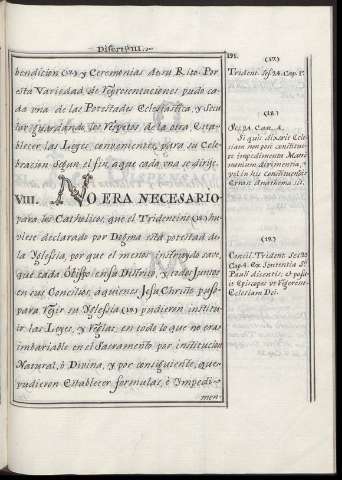 Disert. III.
bendicion (17) y Ceremonias de su Rito. Por
esta Variedad de representaciones pudo ca-
da vna de las Potestades Eclesiastica, y Secu-
lar guardando los respetos de la otra Esta-
blecer las Leyes convenientes, para su Cele-
bracion Segun el fin, a que cada vna se dirije.
VIII. NO ERA NECESARIO
para los Catholicos, que el Tridentino (18) hu-
viese declarado por Dogma esta potestad de
la Yglesia, por que el menos instruydo save,
que cada Obispo en su Distrito, y todos Juntos
en sus Concilios, a quienes Jesu Christo puso
para regir su Yglesia (19) pudieron institu-
ir las Leyes, y Reglas, en todo lo que no eras
imbariable en el Sacramento por institucion
Natural, ò Divina, y por consiguiente, que
pudieron Establecer formulas, è Ympedi-
men-
191.
(17)
Trident. Ses. 24. Cap. 1º.
(18)
Ses. 24. Can. 4.
Si quis dixerit Ecle-
siam non posè constitue-
re impedimenta Matri-
monium dirimentia, v
vel in ieis constituendis
Errasse anathema sit.
(19)
Concil. Trident. Ses. 23
Cap. 4. Ex Sententia Sti
Pauli dicentis, et posu-
it Episcopos vt regerent
Eclesiam Dei.